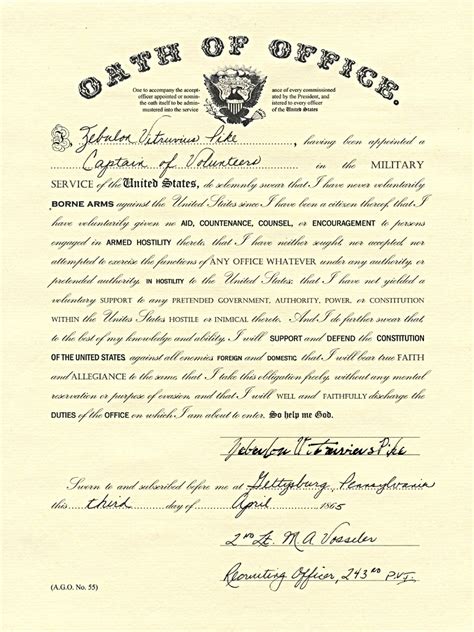 OATH OF OFFICE.
One to accompany the accept-
officer appointed or nomin-
the oath itself to be admin-
mustered into the service
ance of every commissioned
ated by the President, and
istered to every officer
of the United States
I, Zebulon Vitruvius Pike, having been appointed a
Captain of Volunteers in the MILITARY
SERVICE of the United States, do solemnly swear that I have never voluntarily
BORNE ARMS against the United States since I have been a citizen thereof; that I
have voluntarily given no AID, COUNTENANCE, COUNSEL, or ENCOURAGEMENT to persons
engaged in ARMED HOSTILITY thereto; that I have neither sought nor accepted, nor
attempted to exercise the functions of ANY OFFICE WHATEVER under any authority, or
pretended authority, IN HOSTILITY to the United States; that I have not yielded a
voluntary SUPPORT to any PRETENDED GOVERNMENT, AUTHORITY, POWER, or CONSTITUTION
within the United States HOSTILE or INIMICAL thereto. And I do further swear that,
to the best of my knowledge and ability, I will SUPPORT and DEFEND the CONSTITUTION
OF THE UNITED STATES, against all enemies FOREIGN and DOMESTIC; that I will bear true FAITH
and ALLEGIANCE to the same; that I take this obligation freely, without any mental
reservation or purpose of evasion, and that I will WELL and FAITHFULLY discharge the
DUTIES of the OFFICE on which I am about to enter. So help me God.
Zebulon Vitruvius Pike
Sworn to and subscribed before me at Gettysburg, Pennsylvania
this third day of April 1865
2nd Lt. M A Vosseler
Recruiting Officer, 243rd P.V.I.
(A.G.O. No. 55)